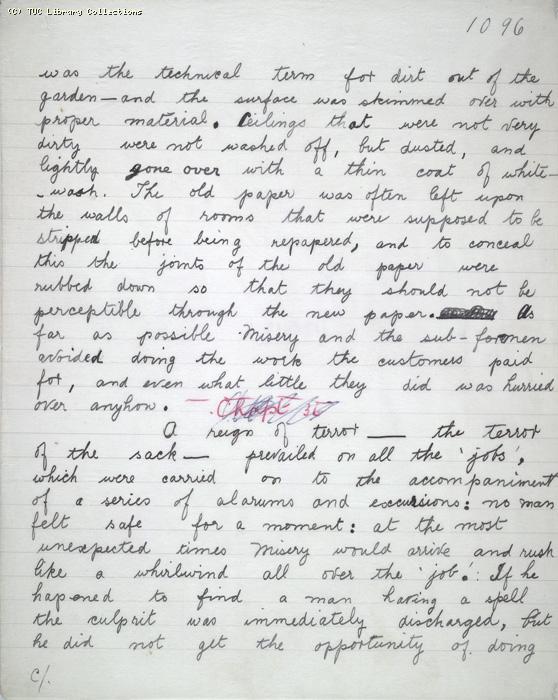 (C) TUC Library Collections
1096
was the technical term for dirt out of the
garden — and the surface was skimmed over with
proper material. Ceilings that were not very
dirty were not washed off, but dusted, and
lightly gone over with a thin coat of white-
-wash. The old paper was often left upon
the walls of rooms that were supposed to be
stripped before being repapered, and to conceal
this the joints of the old paper were
rubbed down so that they should not be
perceptible through the new paper. As
far as possible Misery and the sub-foremen
avoided doing the work the customers paid
for, and even what little they did was hurried
over anyhow. —
A reign of terror — the terror
of the sack — prevailed on all the 'jobs',
which were carried on to the accompaniment
of a series of alarums and excursions: no man
felt safe for a moment: at the most
unexpected times Misery would arrive and rush
like a whirlwind all over the 'job'. If he
happened to find a man having a spell
the culprit was immediately discharged, but
he did not get the opportunity of doing
c/.